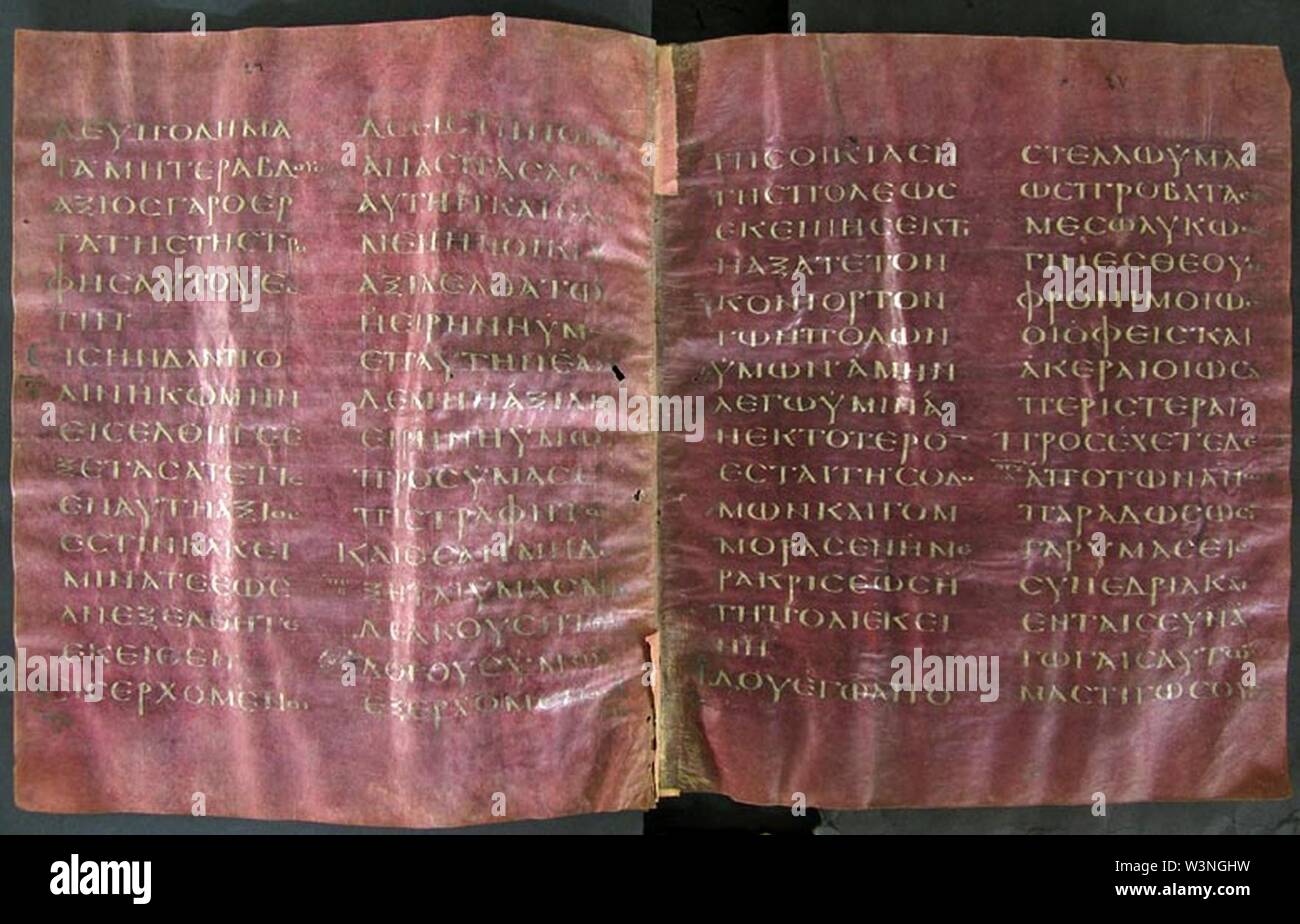 ΔΕΥΠΟΔΗΜΑ
ΤΑΜΗΤΕΡΑΒΔΟΥϹ
ΑΞΙΟϹΓΑΡΟΕΡ
ΓΑΤΗϹΤΗϹΤΡΟ
ΦΗϹΑΥΤΟΥΕϹ
ΤΙΝ
ΕΙϹΗΝΔΑΝΠΟ
ΛΙΝΗΚΩΜΗΝ
ΕΙϹΕΛΘΗΤΕΕ
ΞΕΤΑϹΑΤΕΤΙϹ
ΕΝΑΥΤΗΑΞΙΟϹ
ΕϹΤΙΝΚΑΚΕΙ
ΜΙΝΑΤΕΕΩϹ
ΑΝΕΞΕΛΘΗΤΕ
ΕΚΕΙΘΕΝ
ΕΙϹΕΡΧΟΜΕΝΟΙ
ΑΥΤΗΝΚΑΙΕΑΝ
ΜΕΝΗΗΟΙΚΙΑ
ΑΞΙΑΕΛΘΑΤΩ
ΗΕΙΡΗΝΗΥΜΩ
ΕΠΑΥΤΗΝΕΑΝ
ΔΕΜΗΗΑΞΙΑΗ
ΕΙΡΗΝΗΥΜΩΝ
ΠΡΟϹΥΜΑϹΕ
ΠΙϹΤΡΑΦΗΤΩ
ΚΑΙΟϹΑΝΜΗΔΕ
ΞΗΤΑΙΥΜΑϹΜΗ
ΔΕΑΚΟΥϹΗΤΟΥϹ
ΛΟΓΟΥϹΥΜΩΝ
ΕΞΕΡΧΟΜΕΝΟΙ
ΤΗϹΟΙΚΙΑϹΗ
ΤΗϹΠΟΛΕΩϹ
ΕΚΕΙΝΗϹΕΚΤΙ
ΝΑΞΑΤΕΤΟΝ
ΚΟΝΙΟΡΤΟΝ
ΤΩΝΠΟΔΩΝ
ΫΜΩΝΑΜΗΝ
ΛΕΓΩΫΜΙΝΑ
ΝΕΚΤΟΤΕΡΟ
ΕϹΤΑΙΓΗϹΟΔΟ
ΜΩΝΚΑΙΓΟΜ
ΜΟΡΑϹΕΝΗΜΕ
ΡΑΚΡΙϹΕΩϹΗ
ΤΗΠΟΛΙΕΚΕΙ
ΝΗ
ΙΔΟΥΕΓΩΑΠΟ
ϹΤΕΛΛΩΫΜΑϹ
ΩϹΠΡΟΒΑΤΑΕΝ
ΜΕϹΩΛΥΚΩΝ
ΓΙΝΕϹΘΕΟΥΝ
ΦΡΟΝΙΜΟΙΩϹ
ΟΙΟΦΕΙϹΚΑΙ
ΑΚΕΡΑΙΟΙΩϹ
ΠΕΡΙϹΤΕΡΑΙ
ΠΡΟϹΕΧΕΤΕΔΕ
ΑΠΟΤΩΝΑΝΩΝ
ΠΑΡΑΔΩϹΩϹΙ
ΓΑΡΥΜΑϹΕΙϹ
ϹΥΝΕΔΡΙΑΚΑΙ
ΕΝΤΑΙϹϹΥΝΑ
ΓΩΓΑΙϹΑΥΤΩΝ
ΜΑϹΤΙΓΩϹΟΥϹΙΝ
alamy
Image ID: W3NGHW
www.alamy.com